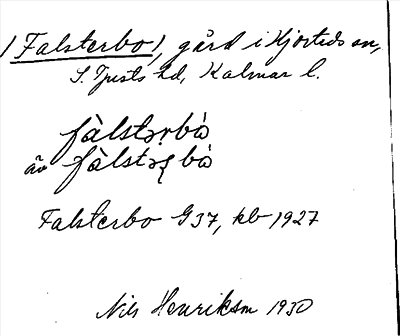 (Falsterbo), gård i Hjorteds sn,
S. Tjusts hd, Kalmar l.
fàlstərbò
äv fàlstəʂbò
Falsterbo G37, kb 1927
Nils Henriksm 1930